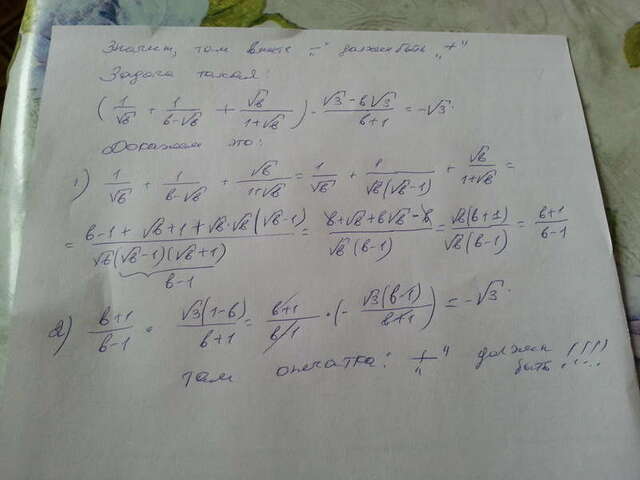 Значит, там вместо „−" должен быть „+"
Задача такая:
(1/√b + 1/(b-√b) + √b/(1+√b)) · (√3-b√3)/(b+1) = -√3.
Докажем это:
1) 1/√b + 1/(b-√b) + √b/(1+√b) = 1/√b + 1/(√b(√b-1)) + √b/(1+√b) =
= (b-1+√b+1+√b·√b(√b-1))/(√b(√b-1)(√b+1)) = (b+√b+b√b-b)/(√b(b-1)) = √b(b+1)/(√b(b-1)) = (b+1)/(b-1)
b-1
2) (b+1)/(b-1) · √3(1-b)/(b+1) = (b+1)/(b-1) · (-√3(b-1)/(b+1)) = -√3.
там опечатка: „+" должен быть !!!!